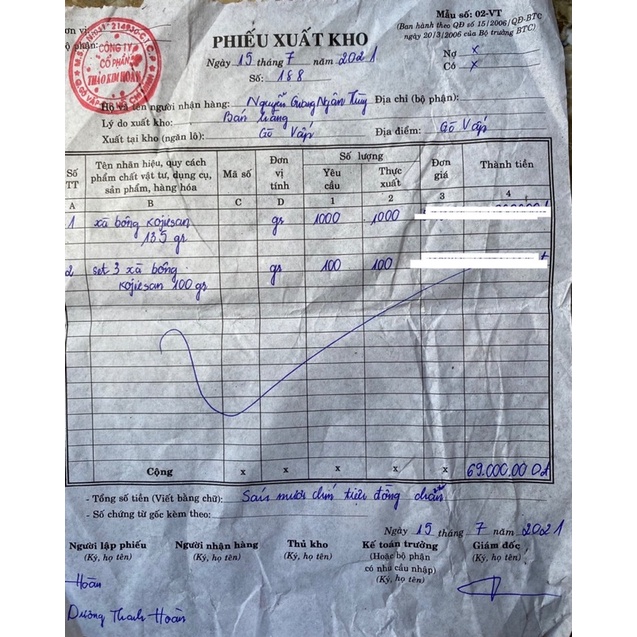 Đơn vị:
Bộ phận:
CÔNG TY
CỔ PHẦN
THẢO KIM HOÀN
Mẫu số: 02-VT
(Ban hành theo QĐ số 15/2006/QĐ-BTC
ngày 20/3/2006 của Bộ trưởng BTC)
PHIẾU XUẤT KHO
Ngày 15 tháng 7 năm 2021
Số: 188
Nợ x
Có x
Họ và tên người nhận hàng: Nguyễn Quang Ngân Thùy Địa chỉ (bộ phận):
Lý do xuất kho: Bán hàng
Xuất tại kho (ngăn lô): Gò Vấp Địa điểm: Gò Vấp
Số TT Tên nhãn hiệu, quy cách phẩm chất vật tư, dụng cụ, sản phẩm, hàng hóa Mã số Đơn vị tính Số lượng Yêu cầu Thực xuất Đơn giá Thành tiền
A B C D 1 2 3 4
1 xà bông kojiesan gr 1000 1000
135 gr
2 set 3 xà bông gr 100 100
kojiesan 100 gr
Cộng x x x x x 69.000.000đ
- Tổng số tiền (Viết bằng chữ): Sáu mươi chín triệu đồng chẵn
- Số chứng từ gốc kèm theo:
Ngày 15 tháng 7 năm 2021
Người lập phiếu Người nhận hàng Thủ kho Kế toán trưởng Giám đốc
(Ký, họ tên) (Ký, họ tên) (Ký, họ tên) (Hoặc bộ phận có nhu cầu nhập) (Ký, họ tên)
(Ký, họ tên)
Hoàn
Dương Thanh Hoàn